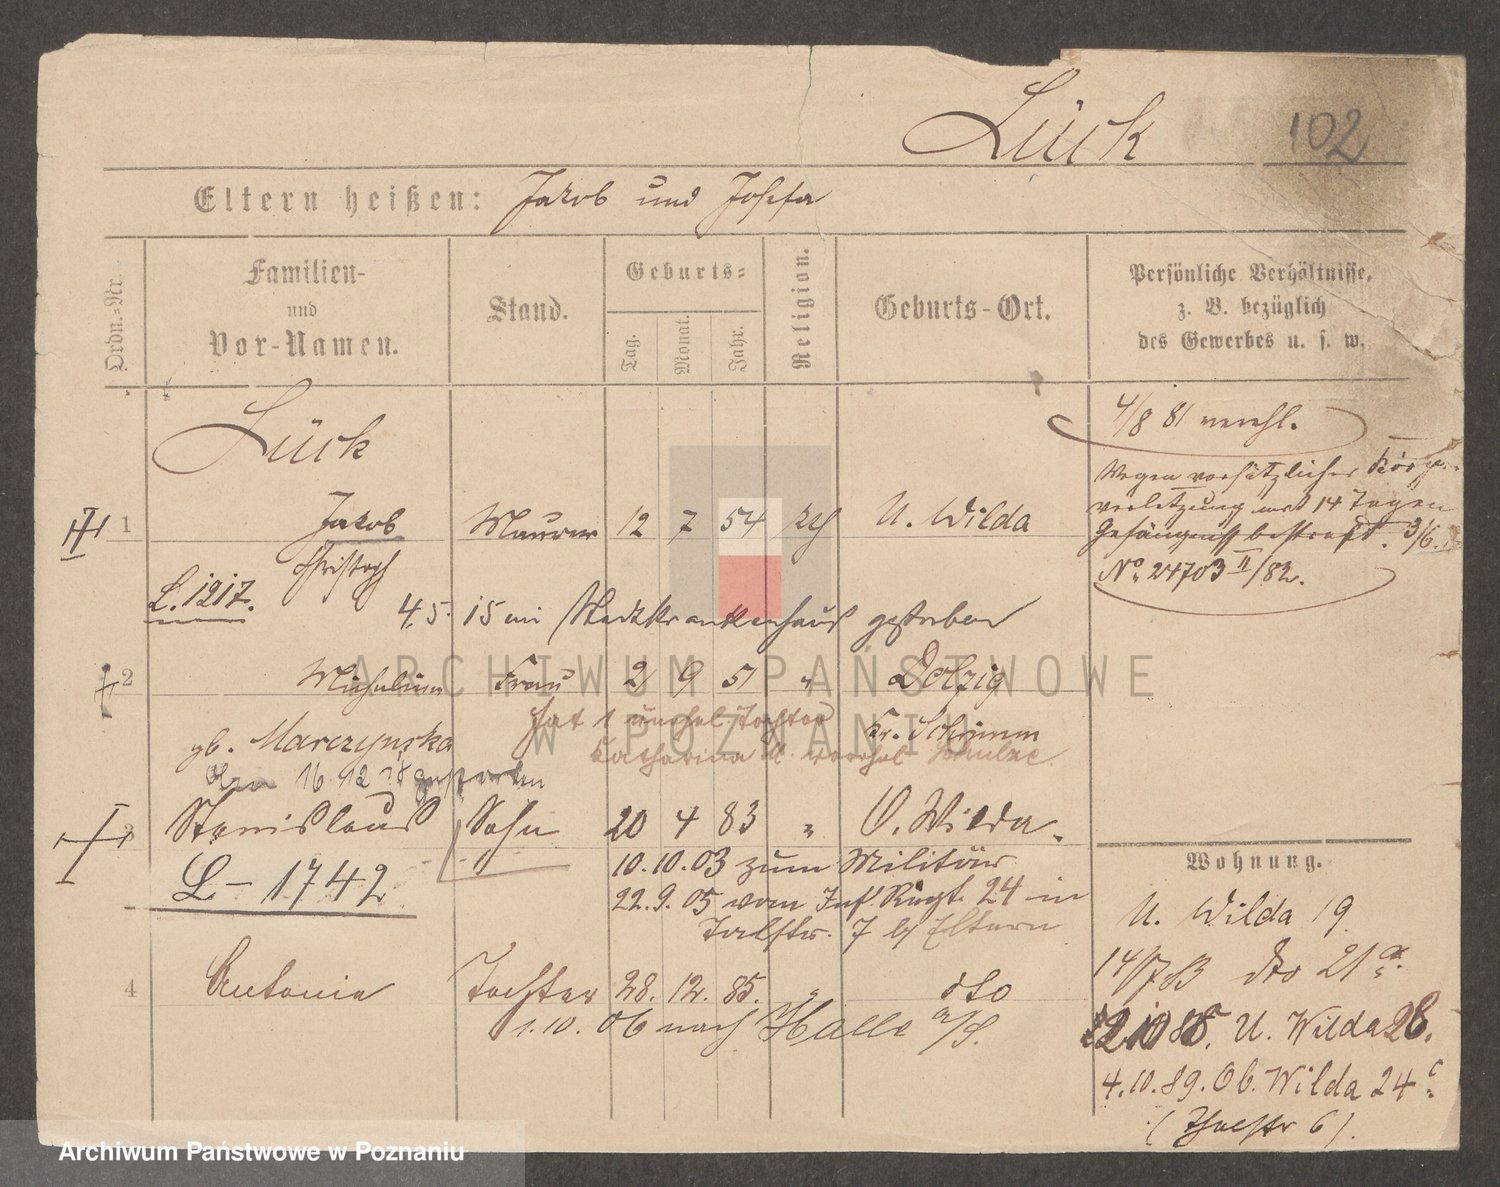 Lück 102
Eltern heißen: Jakob und Josefa
Ordn.-Nr.
Familien-
und
Vor-Namen.
Stand.
Geburts-
Tag. Monat. Jahr.
Religion.
Geburts-Ort.
Persönliche Verhältnisse,
z. B. bezüglich
des Gewerbes u. s. w.
Lück
4/8 81 verehl.
Wegen vorsätzlicher Körper-
verletzung mit 14 Tagen
Gefängniß bestraft. 3/6.
No. 24703 II/82.
1 Jakob Maurer 12 7 54 kth U. Wilda
Christoph
L. 1217.
4.5. 15 im Stadtkrankenhaus gestorben
2 Michalina Frau 21 9 51 " Dolzig
gb. Marczynska Kr. Schrimm
hat 1 unehel. Tochter
Katharina verehel Schulze.
16.12 18 gestorben
3 Stanislaus Sohn 20 4 83 " O. Wilda.
L – 1742
10.10.03 zum Militär
22.9.05 vom Inf. Regt. 24 in
Talstr. 7 b/ Eltern
4 Antonie Tochter 28. 12. 85. " dto
1.10.06 nach Halle a/S.
Wohnung.
U. Wilda 19.
14/7 83 dto 21a.
22 10 85. U. Wilda 28.
4.10.89. Ob. Wilda 24c.
(Thalstr 6).
ARCHIWUM PAŃSTWOWE
W POZNANIU
Archiwum Państwowe w Poznaniu